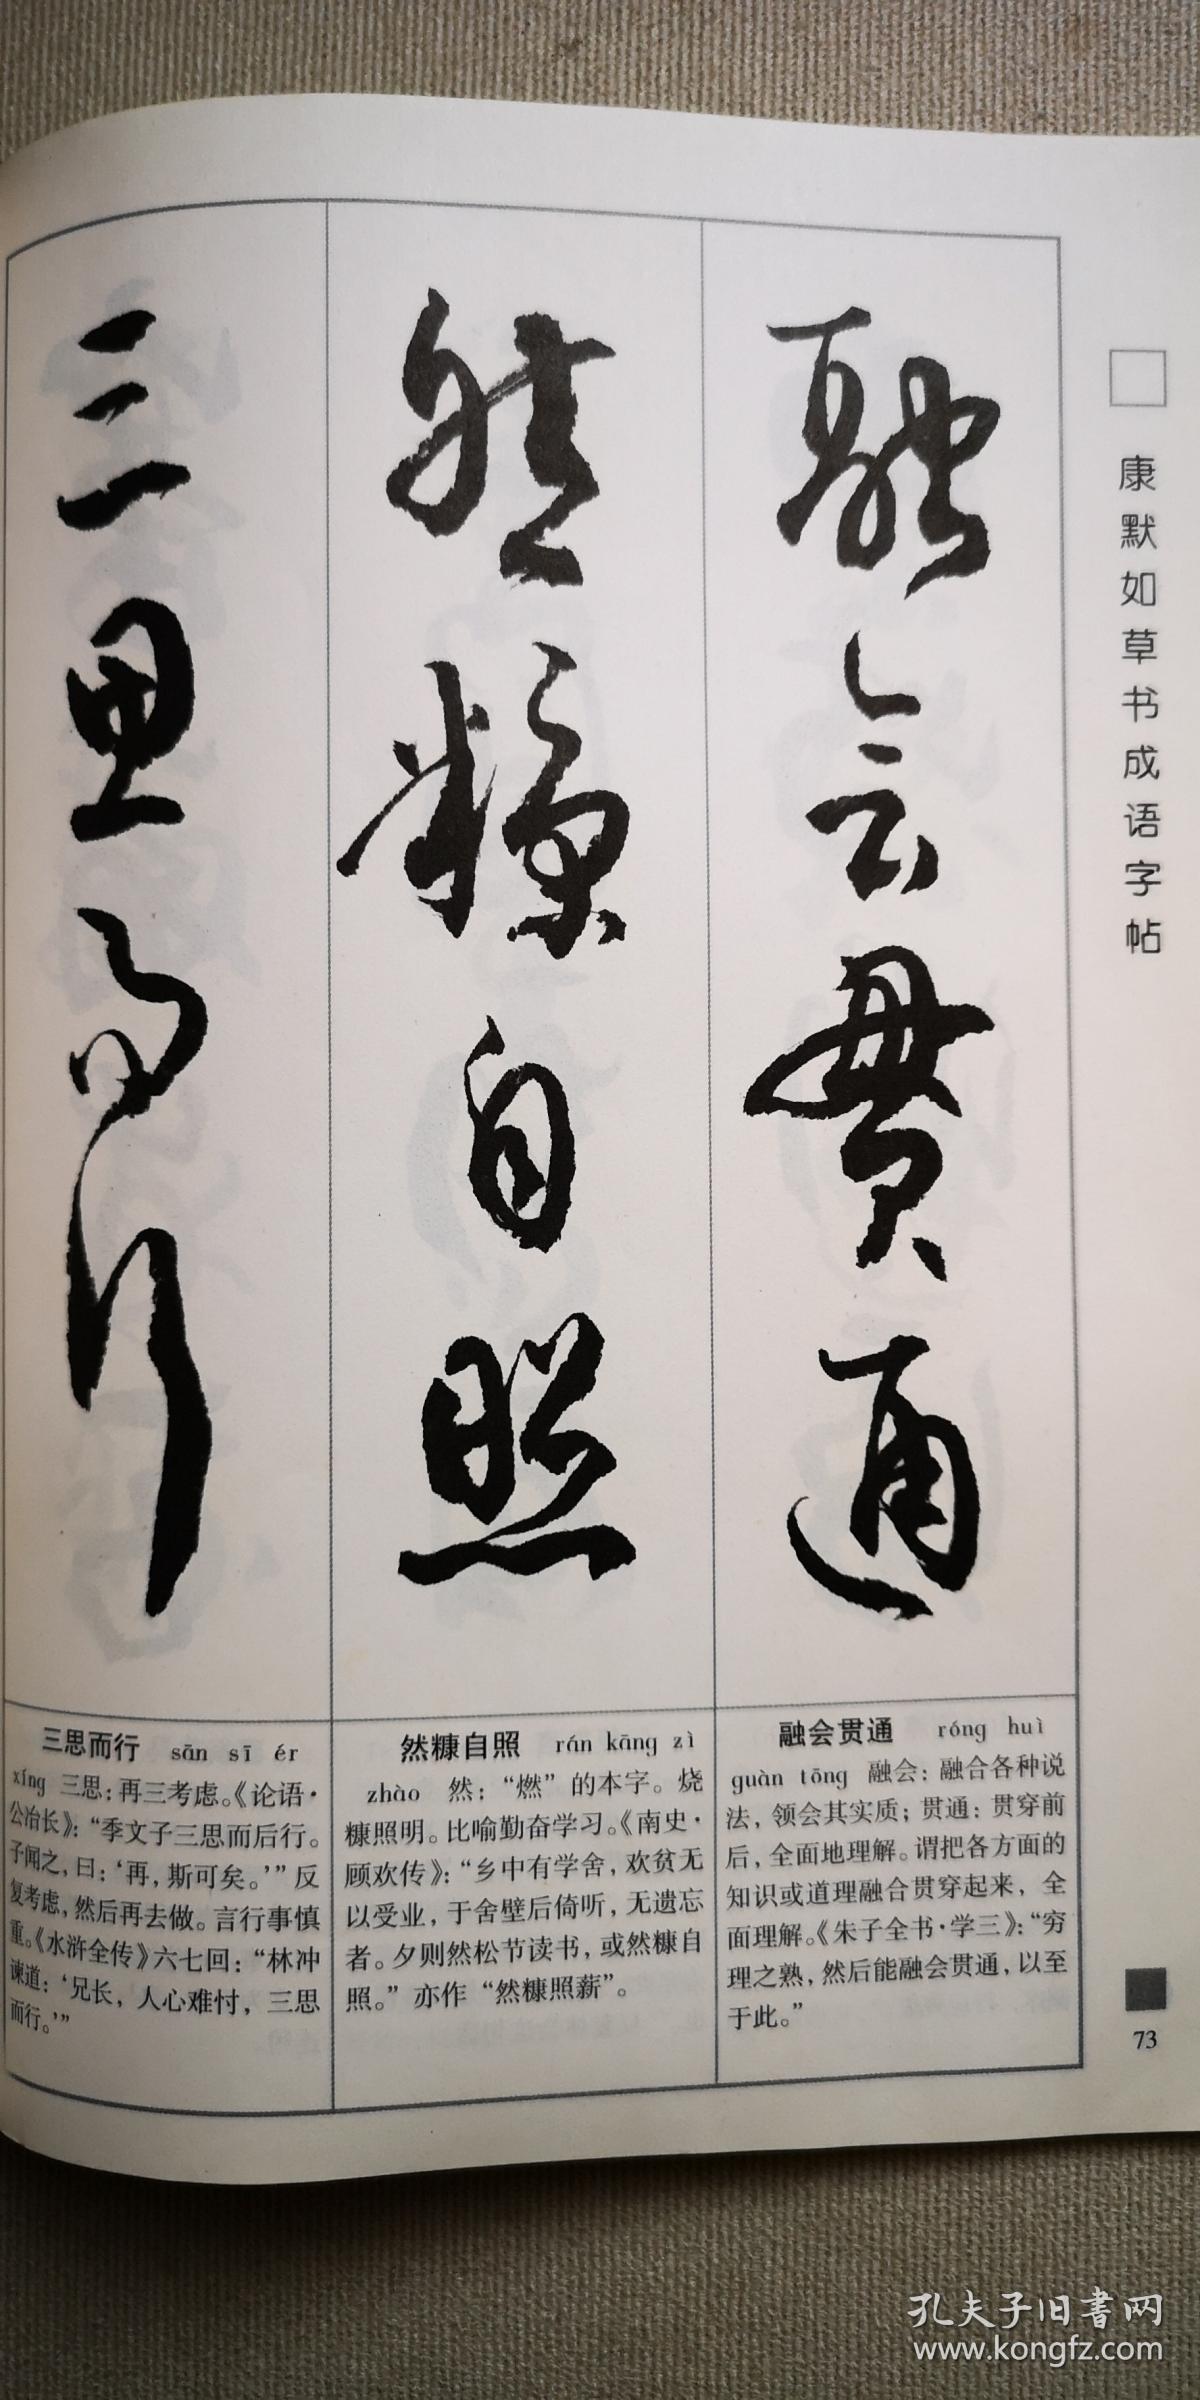 融会贯通
然糠自照
三思而行
康默如草书成语字帖
融会贯通 róng huì
guàn tōng 融会：融合各种说
法，领会其实质；贯通：贯穿前
后，全面地理解。谓把各方面的
知识或道理融合贯穿起来，全
面理解。《朱子全书·学三》：“穷
理之熟，然后能融会贯通，以至
于此。”
然糠自照 rán kāng zì
zhào 然：“燃”的本字。烧
糠照明。比喻勤奋学习。《南史·
顾欢传》：“乡中有学舍，欢贫无
以受业，于舍壁后倚听，无遗忘
者。夕则然松节读书，或然糠自
照。”亦作“然糠照薪”。
三思而行 sān sī ér
xíng 三思：再三考虑。《论语·
公冶长》：“季文子三思而后行。
子闻之，曰：‘再，斯可矣。’”反
复考虑，然后再去做。言行事慎
重。《水浒全传》六七回：“林冲
谏道：‘兄长，人心难忖，三思
而行。’”
73
孔夫子旧书网
www.kongfz.com